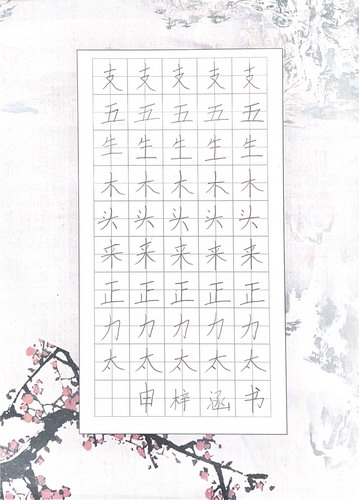 支支支支支
五五五五五
生生生生生
木木木木木
头头头头头
来来来来来
正正正正正
力力力力力
太太太太太
由梓涵书